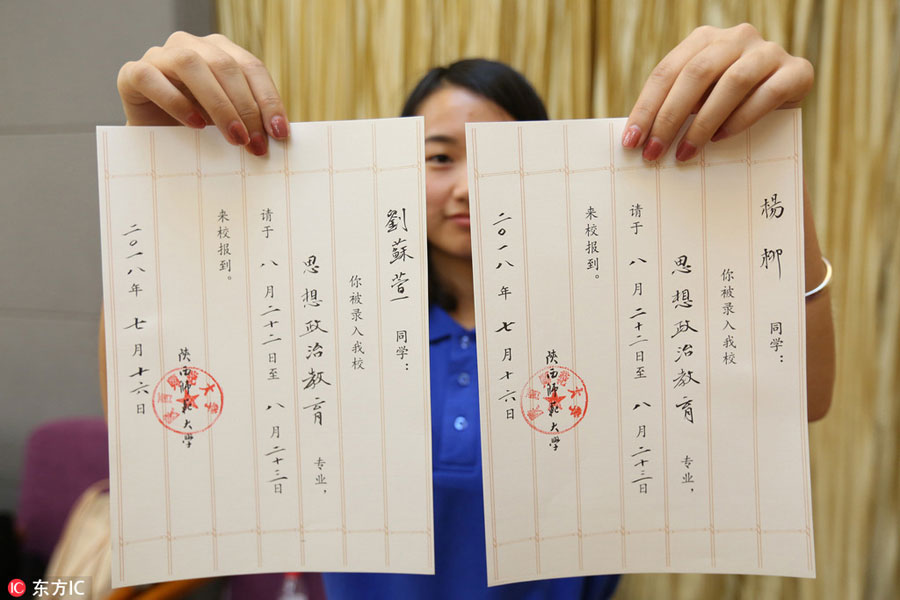 劉蘇萱 同学：
你被录入我校
思想政治教育 专业，
请于 八 月 二十二 日至 八 月 二十三 日
来校报到。
陕西师范大学
二〇一八 年 七 月 十六 日
楊柳 同学：
你被录入我校
思想政治教育 专业，
请于 八 月 二十二 日至 八 月 二十三 日
来校报到。
陕西师范大学
二〇一八 年 七 月 十六 日
IC 东方IC